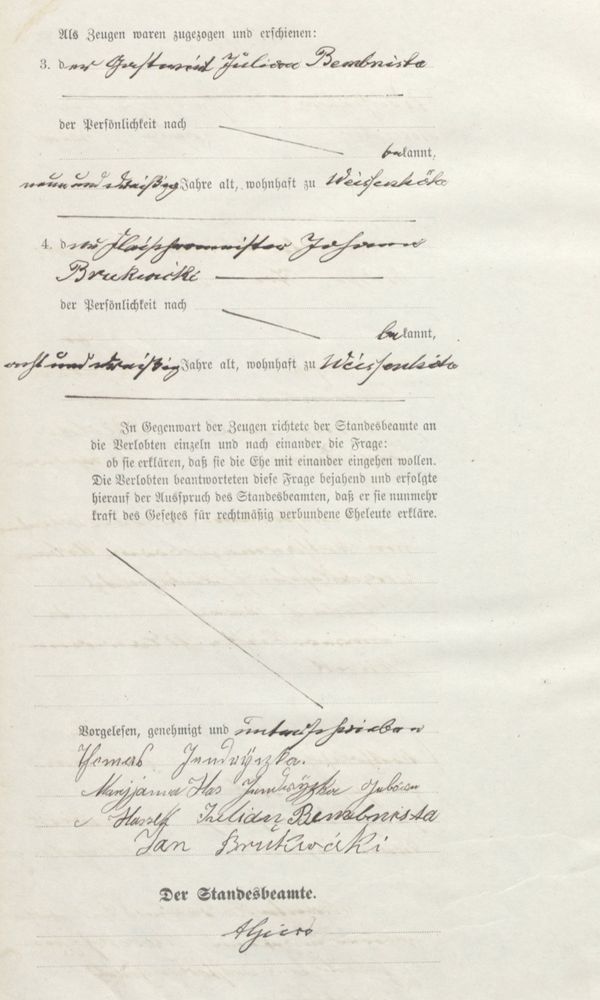 Als Zeugen waren zugezogen und erschienen:
3. der Gastwirt Julian Bembnista
der Persönlichkeit nach
bekannt,
neun und dreißig Jahre alt, wohnhaft zu Weissenhöhe
4. der Fleischermeister Johann
Brukwicki
der Persönlichkeit nach
bekannt,
acht und dreißig Jahre alt, wohnhaft zu Weissenhöhe
In Gegenwart der Zeugen richtete der Standesbeamte an
die Verlobten einzeln und nach einander die Frage:
ob sie erklären, daß sie die Ehe mit einander eingehen wollen.
Die Verlobten beantworteten diese Frage bejahend und erfolgte
hierauf der Ausspruch des Standesbeamten, daß er sie nunmehr
kraft des Gesetzes für rechtmäßig verbundene Eheleute erkläre.
Vorgelesen, genehmigt und unterschrieben
Thomas Jendryczka.
Maryjanna Jendryczka
Julian Bembnista
Jan Brukwicki
Der Standesbeamte.